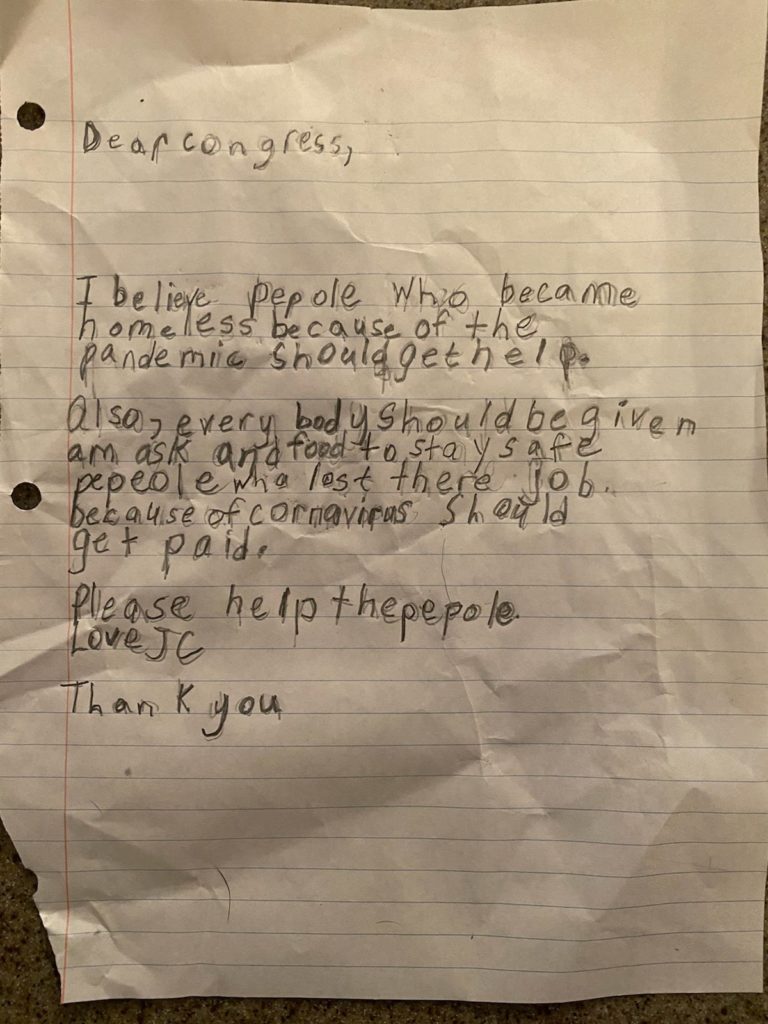 Dear congress,
I believe pepole who became
homeless because of the
pandemic should get help.
Also, every body should be given
a mask and food to stay safe
pepeole who lost there job.
because of cornavirus should
get paid.
Please help the pepole.
Love JC
Thank you